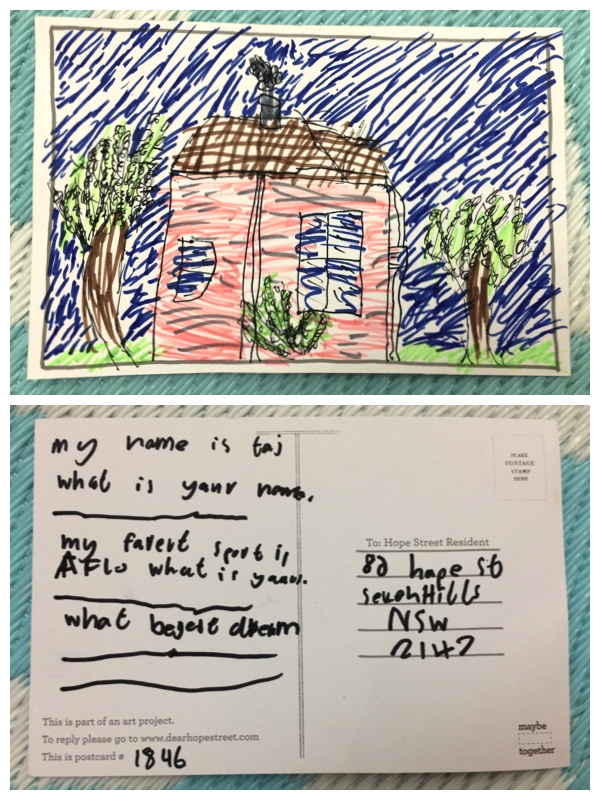 my name is taj
what is yaur name.
my favert sport is
AFLo what is yaurs.
what begest dream
This is part of an art project.
To reply please go to www.dearhopestreet.com
This is postcard # 1846
PLACE
POSTAGE
STAMP
HERE
To: Hope Street Resident
82 hope st
sevenHills
NSW
2147
maybe
together